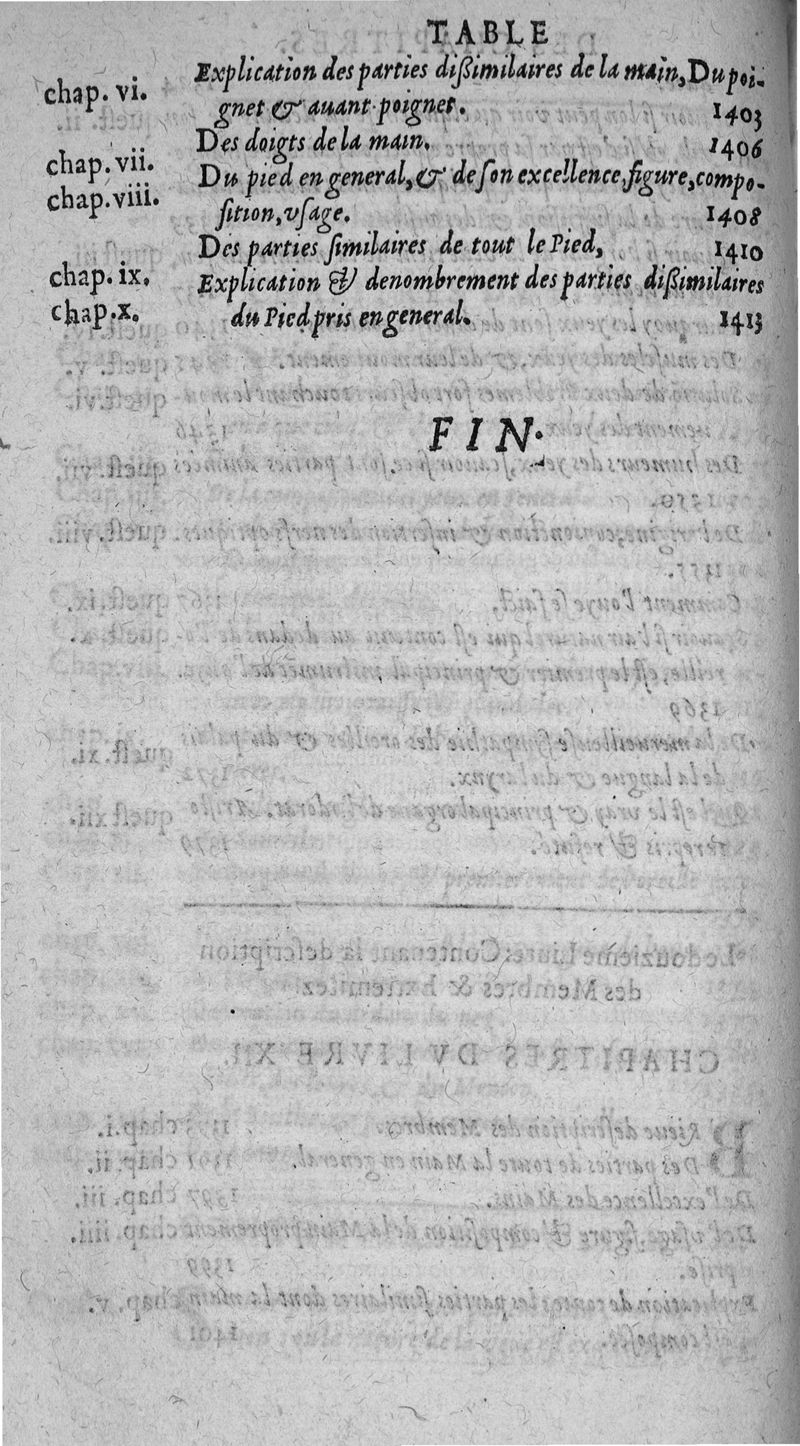 TABLE
chap. vi. Explication des parties dißimilaires de la main, Du poi-
gnet & auant-poignet. 1403
chap. vii. Des doigts de la main. 1406
chap. viii. Du pied en general, & de son excellence, figure, compo-
sition, vsage. 1408
chap. ix. Des parties similaires de tout le Pied, 1410
chap. x. Explication & denombrement des parties dißimilaires
du Pied pris en general. 1413
FIN.